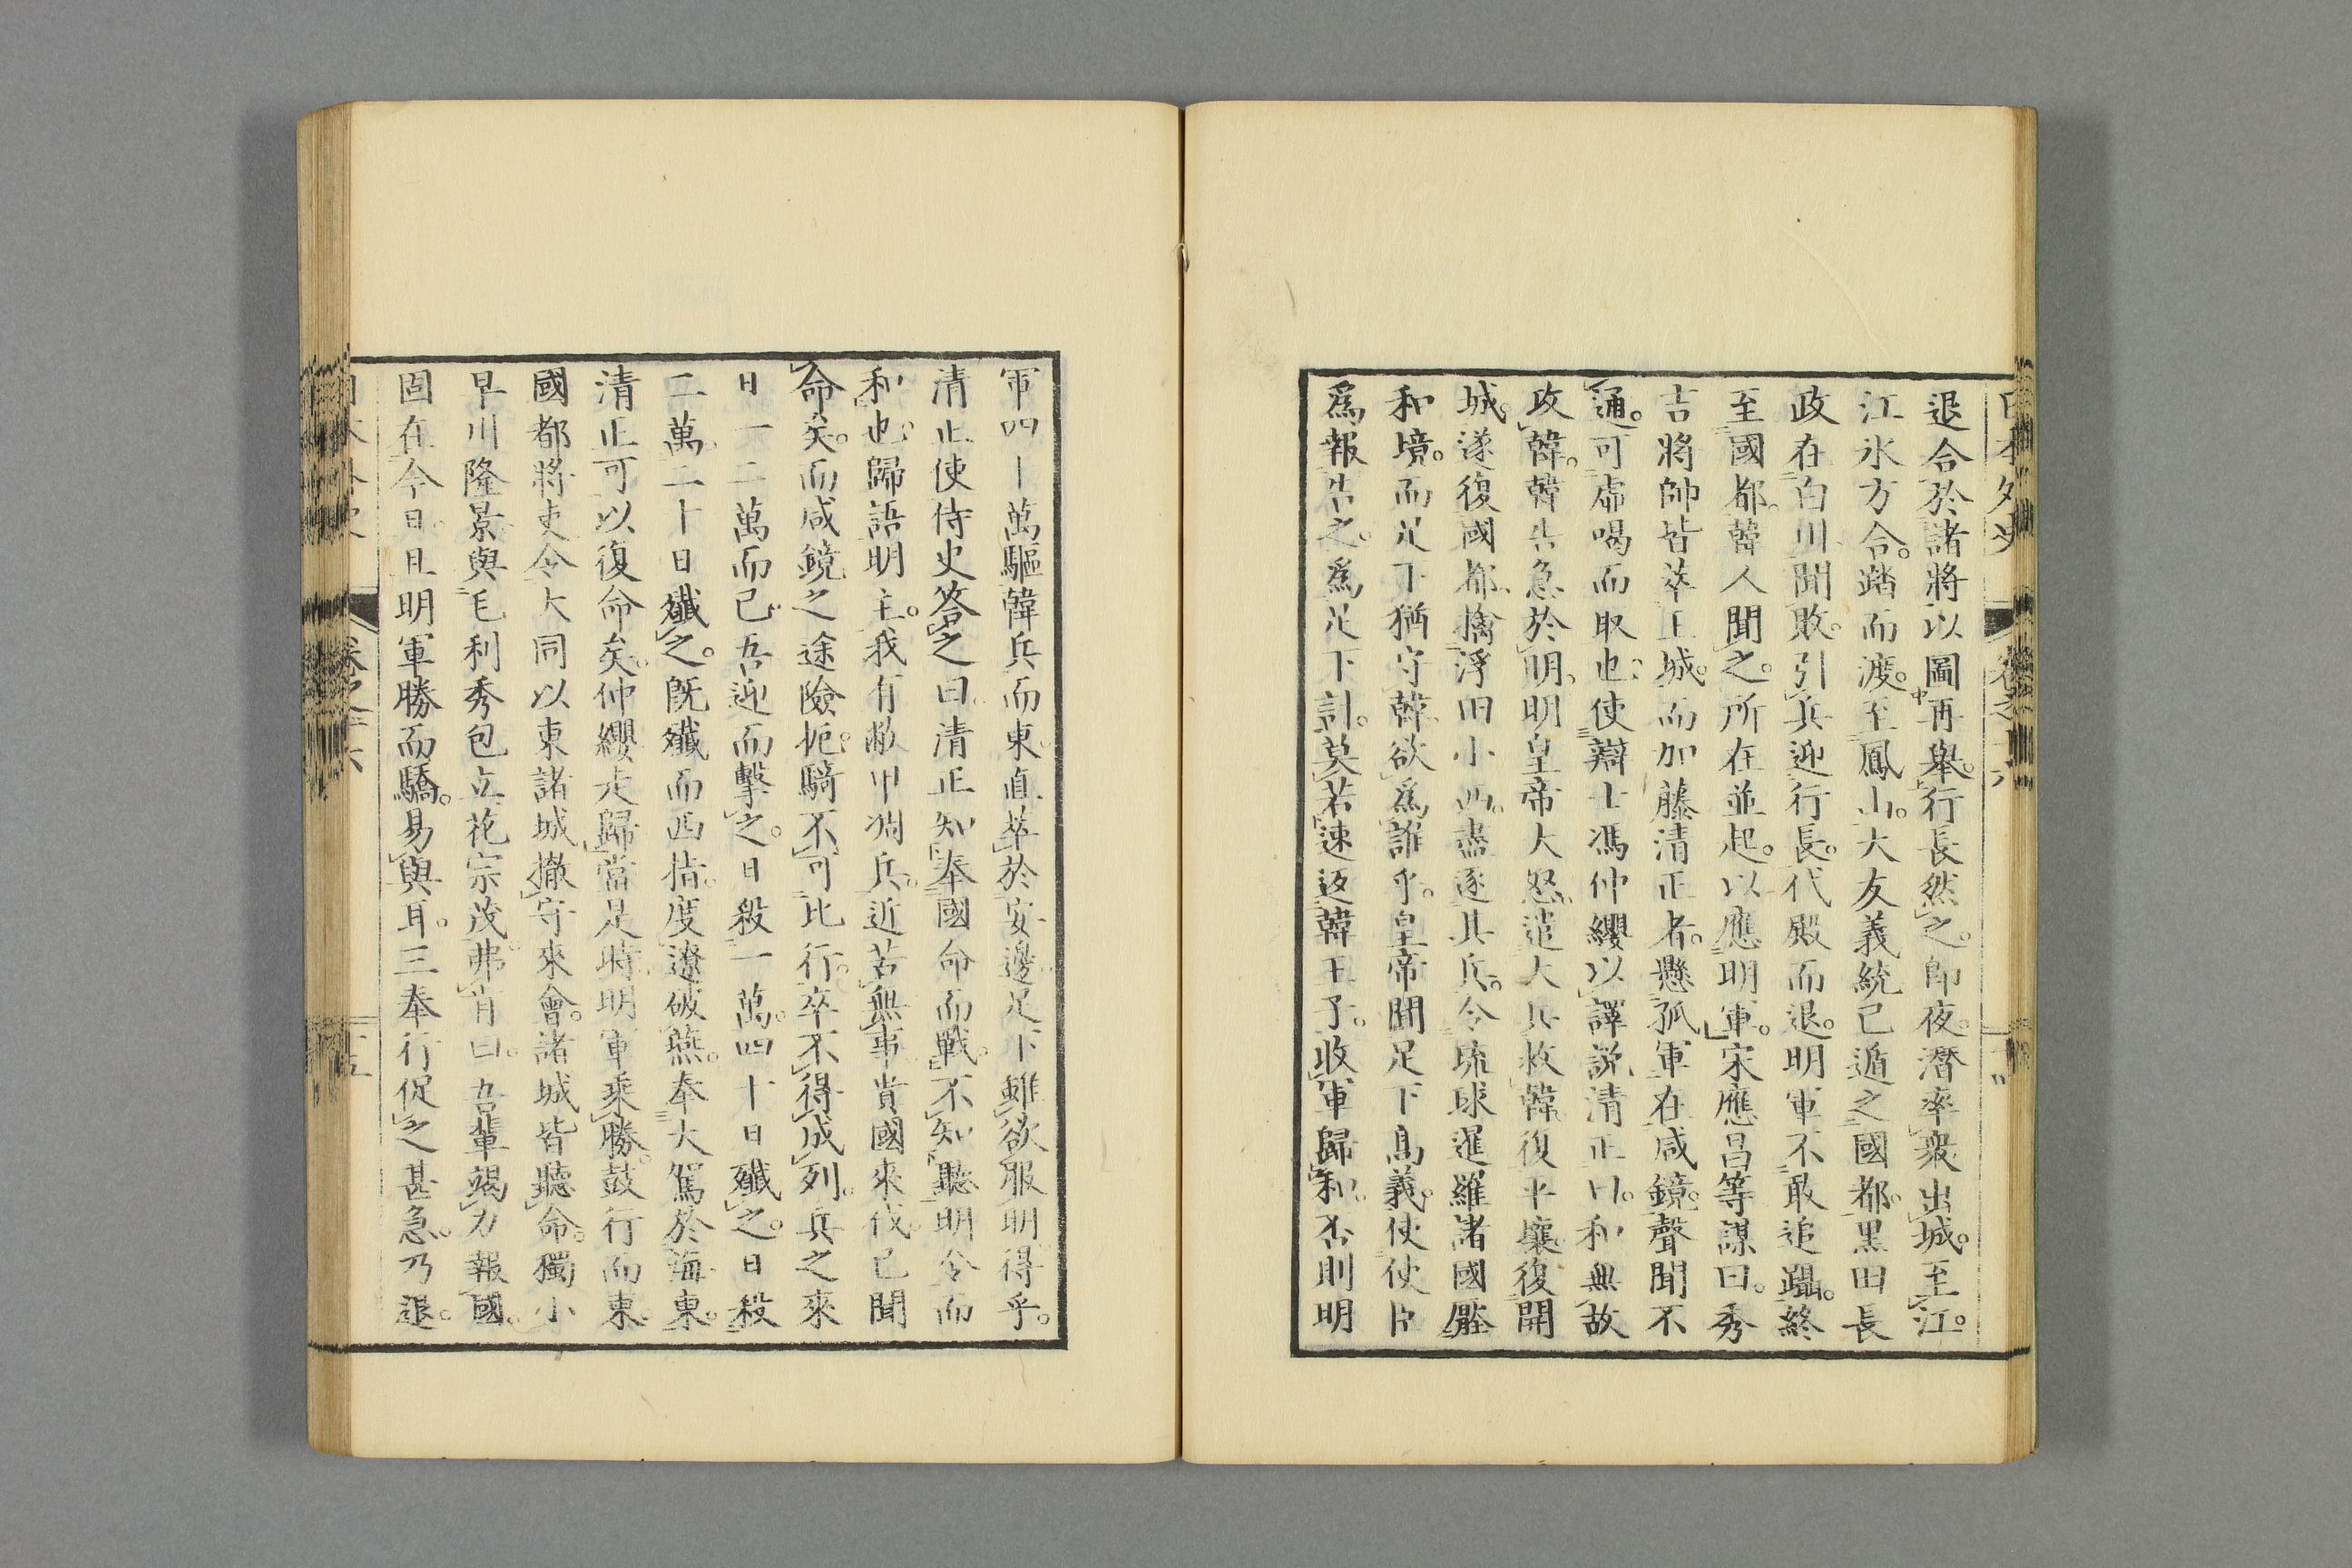 日本外史 卷之十六
退合於諸將以圖再舉。行長然之。即夜。潛率衆出城。至江。
江氷方合。踏而渡。至鳳山。大友義統已遁之國都。黒田長
政在白川聞敗。引兵迎行長。代殿而退。明軍不敢追躡。終
至國都。韓人聞之。所在並起。以應明軍。宋應昌等謀曰。秀
吉將帥皆萃王城。而加藤清正者。懸孤軍在咸鏡。聲聞不
通。可虛喝而取也。使辯士馮仲纓以譯説清正曰。和無故
攻韓。韓告急於明。明皇帝大怒。遣大兵救韓。復平壤。復開
城。遂復國都。擒浮田小西。盡逐其兵。令琉球暹羅諸國壓
和境。而足下猶守韓。欲爲誰乎。皇帝聞足下高義。使使臣
爲報告之。爲足下計。莫若速返韓王子。收軍歸和。否則明
軍四十萬驅韓兵而東。直萃於安邊。足下雖欲服明得乎。
清正使侍史答之曰。清正知奉國命而戰。不知聽明令而
和也。歸語明主。我有敝甲凋兵。近苦無事。貴國來伐。已聞
命矣。而咸鏡之途險扼。騎不可比行。卒不得成列。兵之來
日一二萬而已。吾迎而擊之。日殺一萬。四十日殲之。日殺
二萬。二十日殲之。既殲而西指。度遼破燕。奉大駕於海東。
清正可以復命矣。仲纓走歸。當是時。明軍乘勝。鼓行而東。
國都將吏令大同以東諸城撤守來會。諸城皆聽命。獨小
早川隆景與毛利秀包立花宗茂弗肯曰。吾輩竭力報國。
固在今日。且明軍勝而驕。易與耳。三奉行促之甚急。乃退。
卷之十六